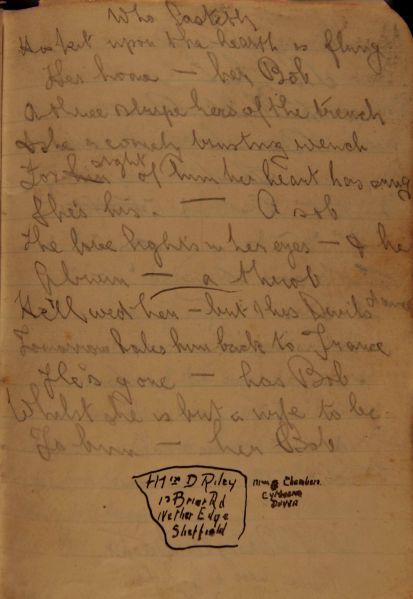 Who
A kit upon the hearth is flung
Her home — her Bob
A three stripe hero of the trench
& she a comely trusting wench
For sight of him her heart has sung
She's his. — A sob
The love lights in her eyes — & he
— a throb
He'll wed her — but this Devils dance
Tomorrow takes him back to France
He's gone — has Bob
Whilst she is but a wife to be
To him — her Bob
Mrs D Riley
Briar Rd
Nether Edge
Sheffield
Chambers